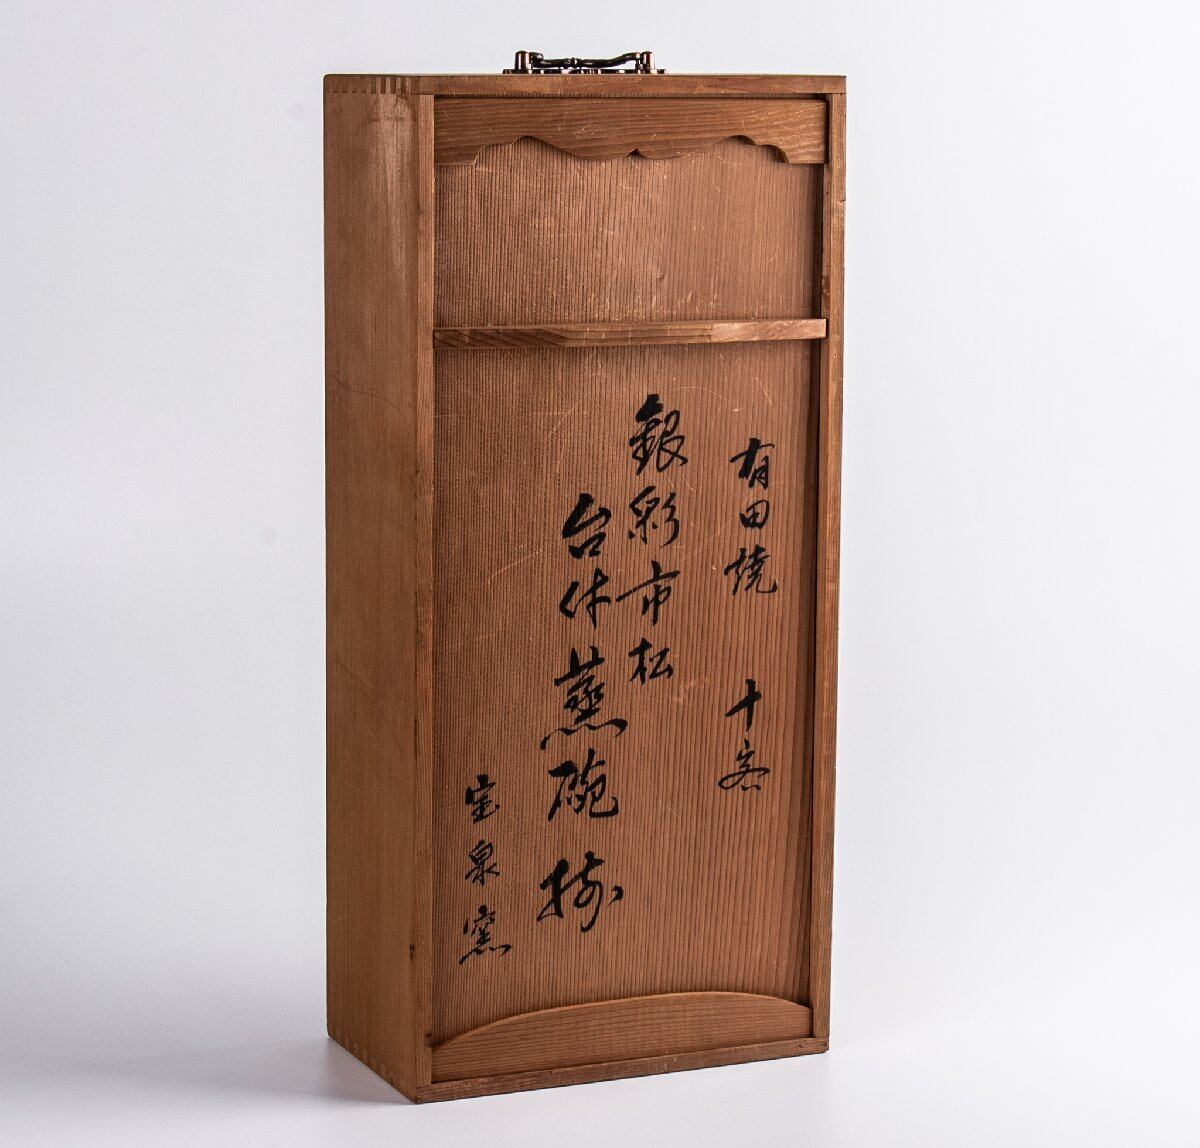 有田焼 十客
銀彩市松
台付蒸碗 揃
宝泉窯